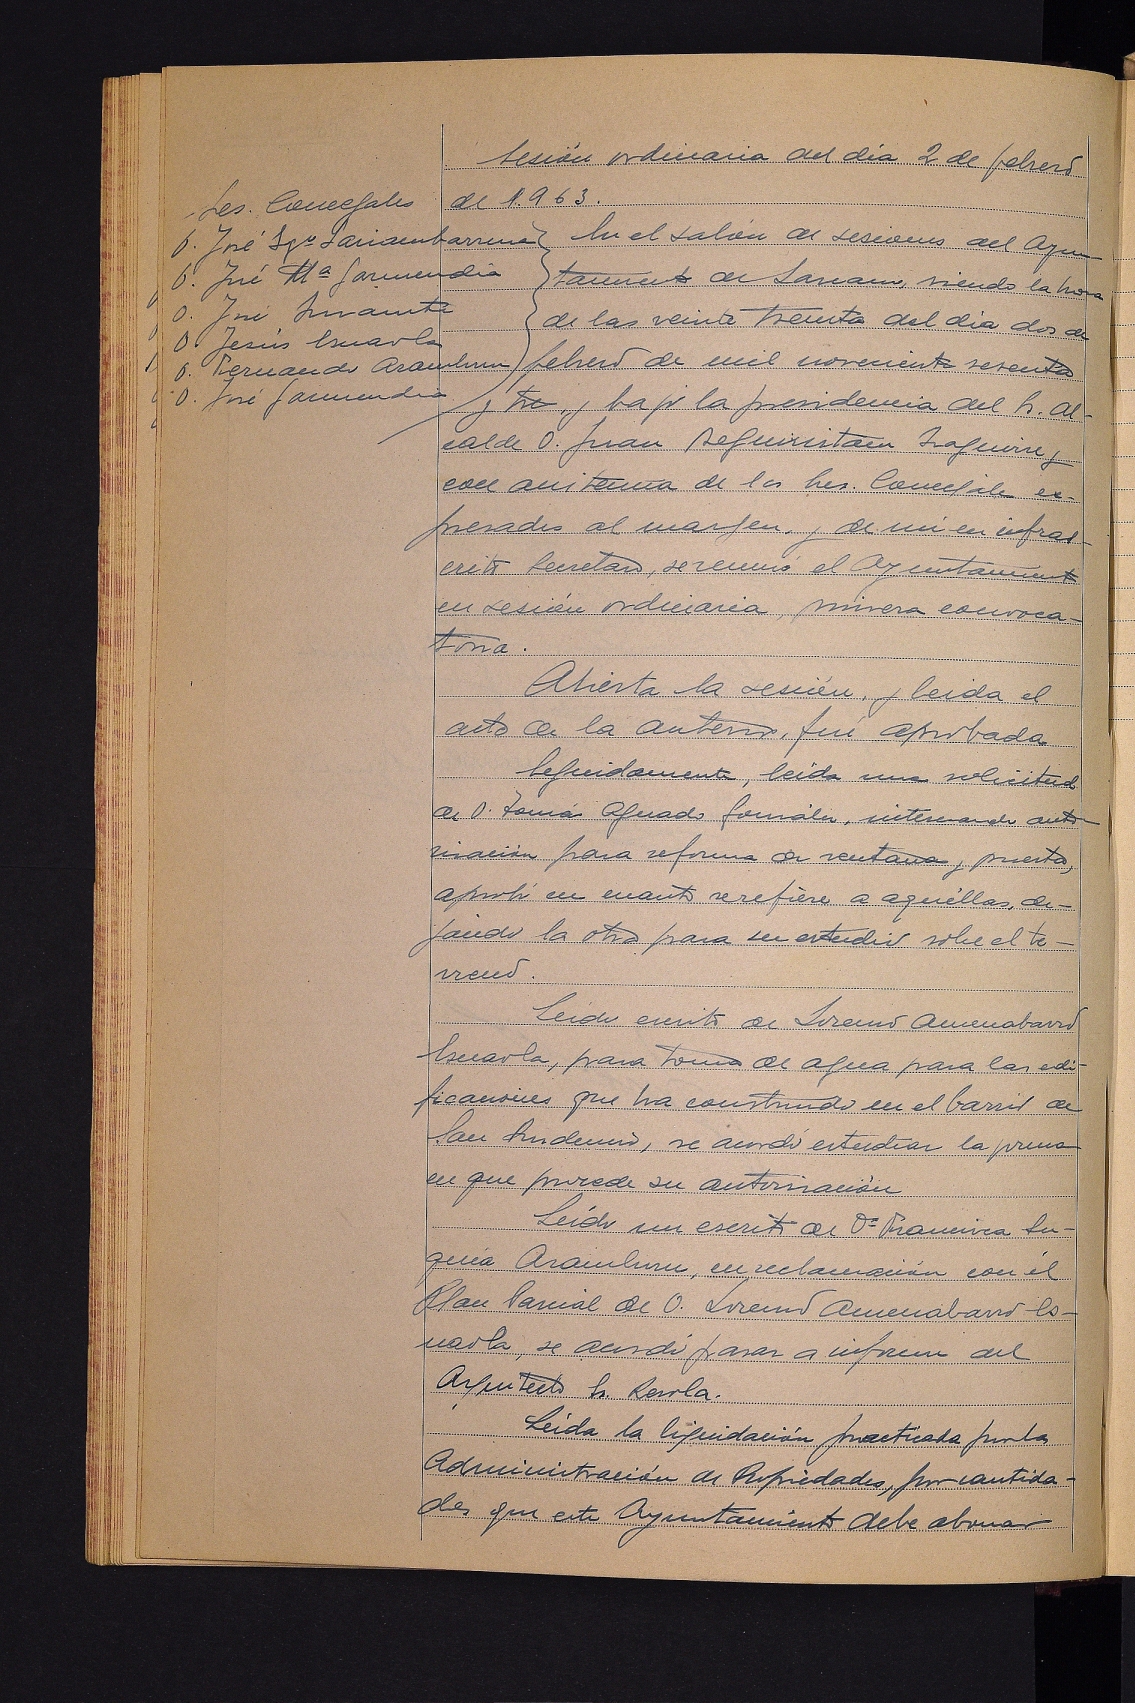 Sesión ordinaria del día 2 de febrero
de 1.963.
Sres. Concejales
D. José Igº Sarianbarrena
D. José Mª Garmendia
D. José Iruranta
D. Jesús Esnaola
D. Fernando Aramburu
D. José Garmendia
En el salón de sesiones del Ayun
tamiento de siendo la hora
de las veinte treinta del día dos de
febrero de mil noveciento sesenta
y tres, y bajo la presidencia del Sr. Al-
calde D. Juan Beguiristain Izaguirre y
con asistencia de los Sres. Concejales ex-
presados al margen, y de mi en infras-
crito Secretario, se reunió el Ayuntamiento
en sesión ordinaria, primera convoca-
toria.
Abierta la sesión, y leida el
acta de la anterior, fué aprobada
Seguidamente, leida una solicitud
de D. Tomás Aguado González, interesando auto
rización para reforma de ventanas y puerta,
aprobó en cuanto se refiere a aquéllas, de-
jando la otra para su estudio sobre el te-
rreno.
Leido escrito de Lorenzo Amenabarro
Esnaola, para toma de agua para las edi-
ficaciones que ha construido en el barrio de
San se acordó estudiar la forma
en que procede su autorización
Leído un escrito de Dª Francisca Su-
quia Aramburu, en reclamación con el
Plan Parcial de D. Lorenzo Amenabarro Es-
naola, se acordó pasar a informe del
Arquitecto Sr. Rezola.
Leida la liquidación practicada por la
Administración de Propiedades, por cantida-
des que este Ayuntamiento debe abonar